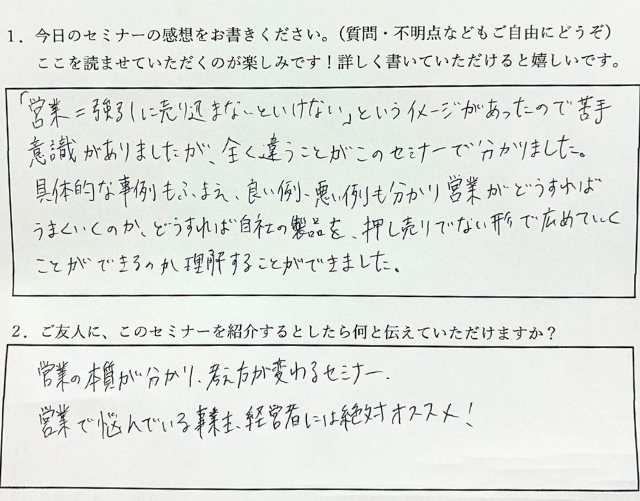 1．今日のセミナーの感想をお書きください。（質問・不明点などもご自由にどうぞ）
ここを読ませていただくのが楽しみです！詳しく書いていただけると嬉しいです。
「営業＝強引に売り込まないといけない」というイメージがあったので苦手
意識がありましたが、全く違うことがこのセミナーで分かりました。
具体的な事例もふまえ、良い例、悪い例も分かり営業がどうすれば
うまくいくのか、どうすれば自社の製品を、押し売りでない形で広めていく
ことができるのか理解することができました。
2．ご友人に、このセミナーを紹介するとしたら何と伝えていただけますか？
営業の本質が分かり、考え方が変わるセミナー．
営業で悩んでいる事業主、経営者には絶対オススメ！